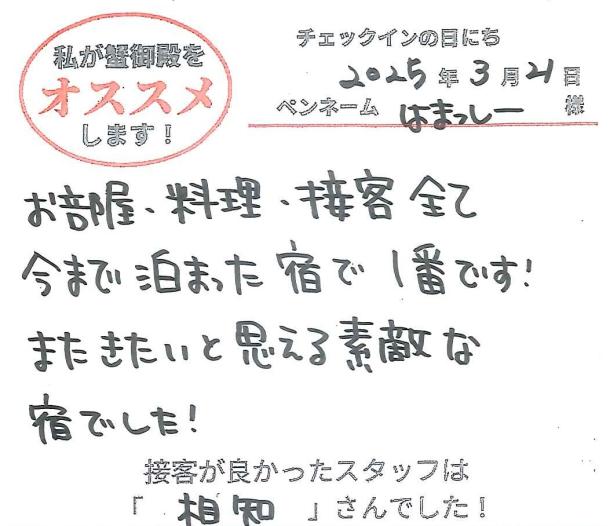 私が蟹御殿を
オススメ
します！
チェックインの日にち
2025年3月21日
ペンネーム はまっしー 様
お部屋、料理、接客全て
今まで泊まった宿で1番です!
またきたいと思える素敵な
宿でした!
接客が良かったスタッフは
「相知」さんでした！